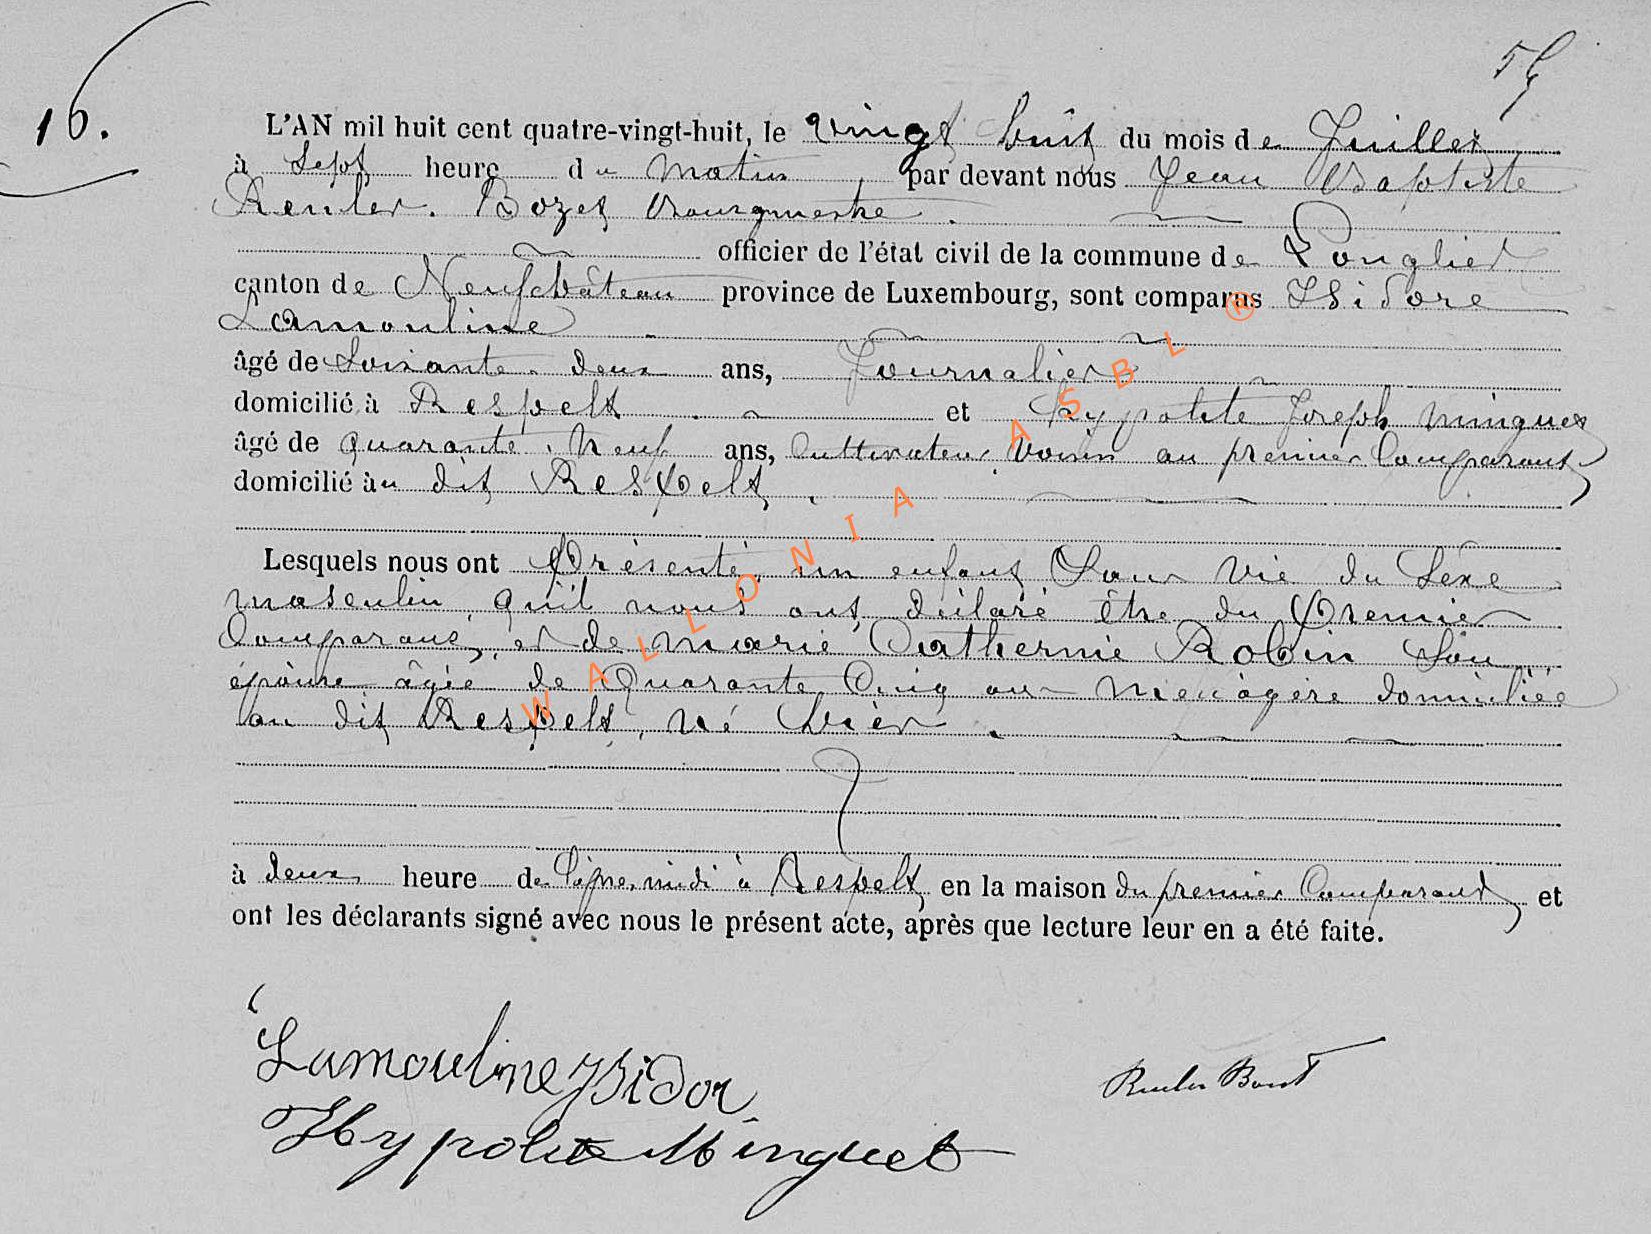 16.
L'AN mil huit cent quatre-vingt-huit, le vingt huit du mois de Juillet
à Sept heure du Matin par devant nous Jean Baptiste
Reuler. Bozet Bourgmestre.
officier de l'état civil de la commune de Longlier
canton de Neufchâteau province de Luxembourg, sont comparus Isidore
Lamouline
âgé de Soixante-deux ans, Journalier
domicilié à Respelt et hypolite Joseph Minguet
âgé de quarante-Neuf ans, Cultivateur, Voisin au premier Comparant,
domicilié au dit Respelt,
Lesquels nous ont présenté, un enfant Sans Vie du Sexe
masculin, qu'il nous ont déclaré être du Premier
Comparant, et de marie Catherine Robin Son
épouse âgée de Quarante Cinq ans Menagère domiciliée
au dit Respelt, né hier.
à deux heure de l'après-midi à Respelt en la maison du premier Comparant, et
ont les déclarants signé avec nous le présent acte, après que lecture leur en a été faite.
Lamouline ysidor
Hypolite Minguet
WALLONIA ASBL ®